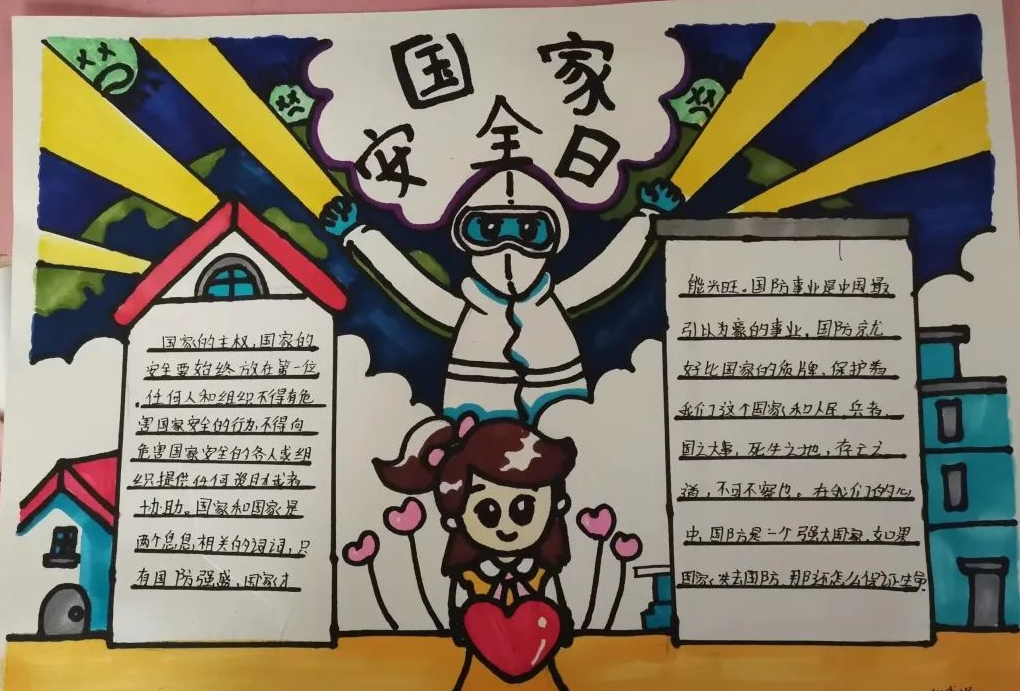 国家
安全日
国家的主权，国家的
安全要始终放在第一位
，任何人和组织不得有危
害国家安全的行为，不得向
危害国家安全的各人或组
织提供任何资助或者
协助。国家和国家是
两个息息相关的词词，只
有国防强盛，国家才
能兴旺。国防事业是中国最
引以为豪的事业，国防就
好比国家的质牌，保护着
我们这个国家和人民，兵者，
国之大事，死生之地，存亡之
道，不可不察也。在我们的心
中，国防是一个强大国家，如果
国家失去国防，那还怎么保证生命